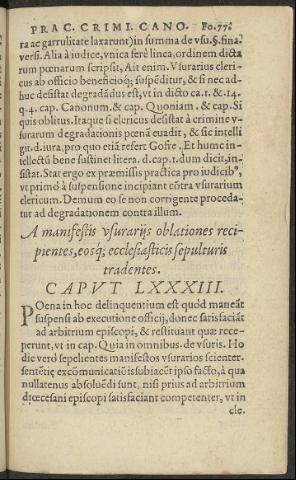 PRAC. CRIMI. CANO. Fo. 77.
ra ac garrulitate laxarunt) in summa de vsu. §. fina.
versi. Alia à iudice, vnica ferè linea, ordinem dicta
rum pœnarum scripsit, Ait enim. Vsurarius cleri-
cus ab officio beneficioq; suspẽditur, & si nec ad-
huc desistat degradãdus est, vt in dicto ca. 1. & .14.
q. 4. cap. Canonum. & cap. Quoniam. & cap. Si
quis oblitus. Itaque si clericus desistat à crimine v-
surarum degradationis pœnã euadit, & sic intelli
git. d. iura. pro quo etiã refert Gofre. Et hunc in-
tellectũ bene sustinet litera. d. cap. 1. dum dicit, in-
sistat. Stat ergo ex præmissis practica pro iudicib⁹,
vt primò à suspensione incipiant cõtra vsurarium
clericum. Demum eo se non corrigente proceda-
tur ad degradationem contra illum.
A manifestis vsurarijs oblationes reci-
pientes, eosq; ecclesiasticis sepulturis
tradentes.
CAPVT LXXXIII.
POena in hoc delinquentium est quòd maneãt
suspensi ab executione officij, donec satisfaciãt
ad arbitrium episcopi, & restituant quæ rece-
perunt, vt in cap. Quia in omnibus. de vsuris. Ho
die verò sepelientes manifestos vsurarios scienter
sentẽtię excõmunicatiõis subiacẽt ipso facto, à qua
nullatenus absoluẽdi sunt, nisi prius ad arbitrium
diœcesani episcopi satisfaciant competenter, vt in
cle.